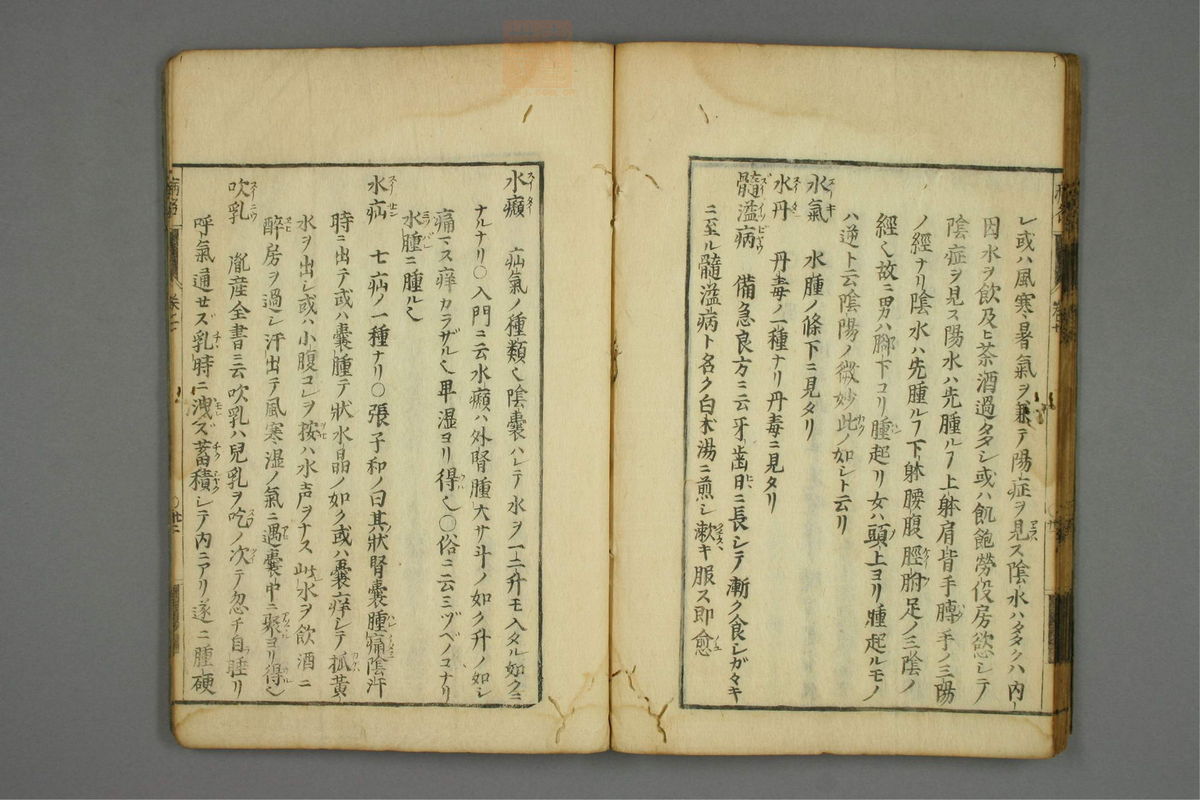 レ或ハ風寒暑氣ヲ兼テ陽症ヲ見ス陰水ハタタクハ內ー
因水ヲ飲及ヒ茶酒過タタシ或ハ飢飽勞役房慾シテ
陰症ヲ見ス陽水ハ先腫ルヿ上躰肩背手膊手ノ三陽
ノ經ナリ陰水ハ先腫ルヿ下躰腰腹脛胕足ノ三陰ノ
經也故ニ男ハ脚下コリ腫起リ女ハ頭上ヨリ腫起ルモノ
ハ逆ト云陰陽ノ微妙此ノ如シト云リ
水氣 水腫ノ條下ニ見タリ
水丹 丹毒ノ一種ナリ丹毒ニ見タリ
髓溢病 備急良方ニ云牙齒日ニ長シテ漸ク食シガタキ
ニ至ル髓溢病ト名ク白朮湯ニ煎シ漱キ服ス即愈
水㿗 疝氣ノ種類也陰囊ハレテ水ヲ一二升モ入タル如クニ
ナルナリ〇入門ニ云水㿗ハ外腎腫大サ斗ノ如ク升ノ如シ
痛マス痒カラザル也卑湿ヨリ得也〇俗ニ云ミヅヘノコナリ
水腫ニ腫ル也
水疝 七疝ノ一種ナリ〇張子和ノ曰其狀腎囊腫痛陰汗
時ニ出テ或ハ囊腫テ狀水晶ノ如ク或ハ囊痒シテ𤓰黃
水ヲ出シ或ハ小腹コレヲ按ハ水声ヲナス此水ヲ飲酒ニ
醉房ヲ過シ汗出テ風寒湿ノ氣ニ遇囊中ニ聚ヨリ得也
吹乳 胤產全書ニ云吹乳ハ兒乳ヲ吃ノ次テ忽チ自睡リ
呼氣通せズ乳時ニ洩ズ蓄積シテ內ニアリ遂ニ腫硬